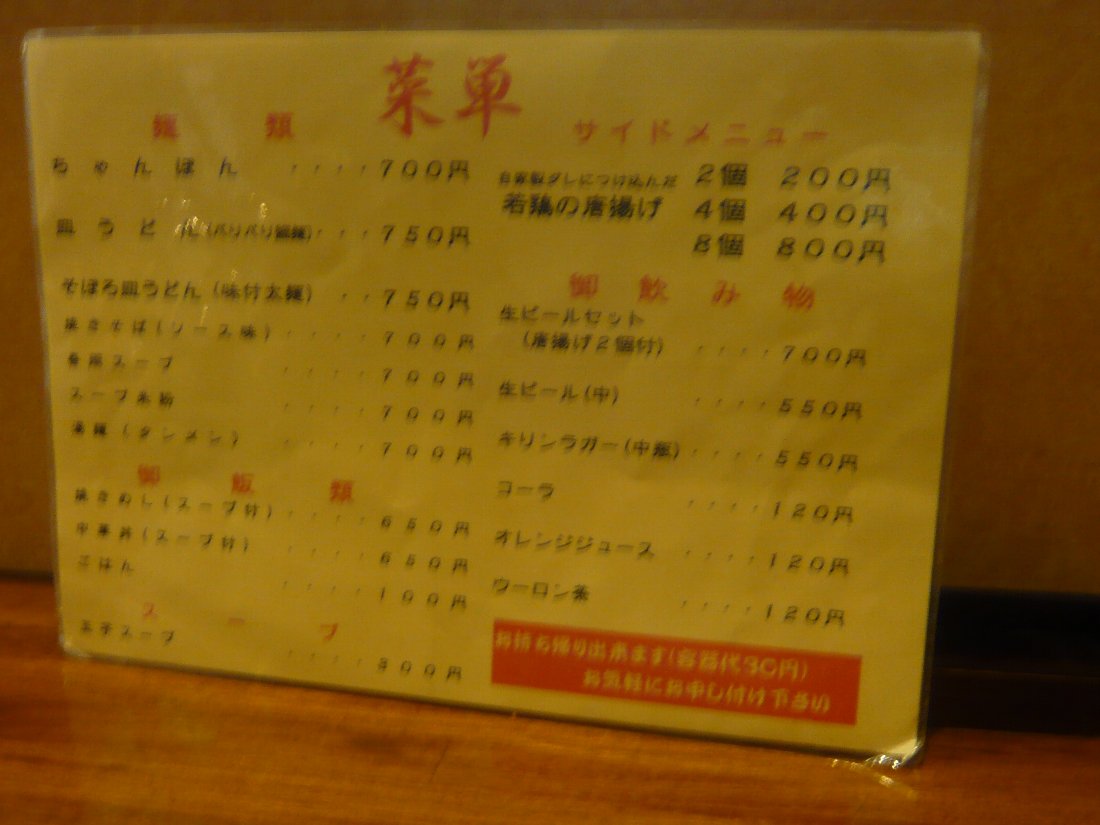 菜単
麺類
ちゃんぽん ････700円
皿うどん(パリパリ細麺)･･･750円
そぼろ皿うどん(味付太麺) ･･750円
焼きそば(ソース味) ････700円
春雨スープ ････700円
スープ米粉 ････700円
湯麺(タンメン) ････700円
御飯類
焼きめし(スープ付)････650円
中華丼(スープ付) ････650円
ごはん ････100円
スープ
玉子スープ ････300円
サイドメニュー
自家製ダレにつけ込んだ
若鶏の唐揚げ
2個 200円
4個 400円
8個 800円
御飲み物
生ビールセット
(唐揚げ2個付) ････700円
生ビール(中) ････550円
キリンラガー(中瓶)････550円
コーラ ････120円
オレンジジュース ････120円
ウーロン茶 ････120円
お持ち帰り出来ます(容器代30円)
お気軽にお申し付け下さい